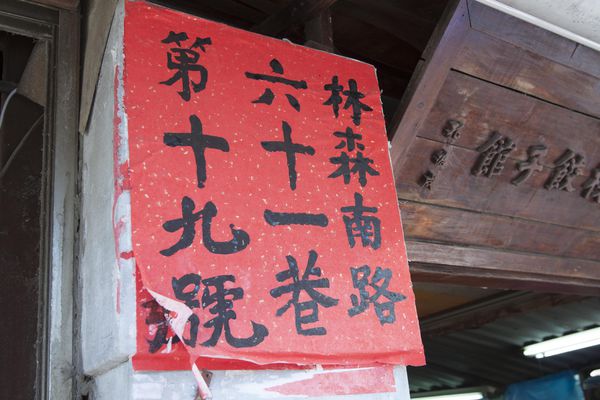 林森南路
六十一巷
第十九號
餃子館